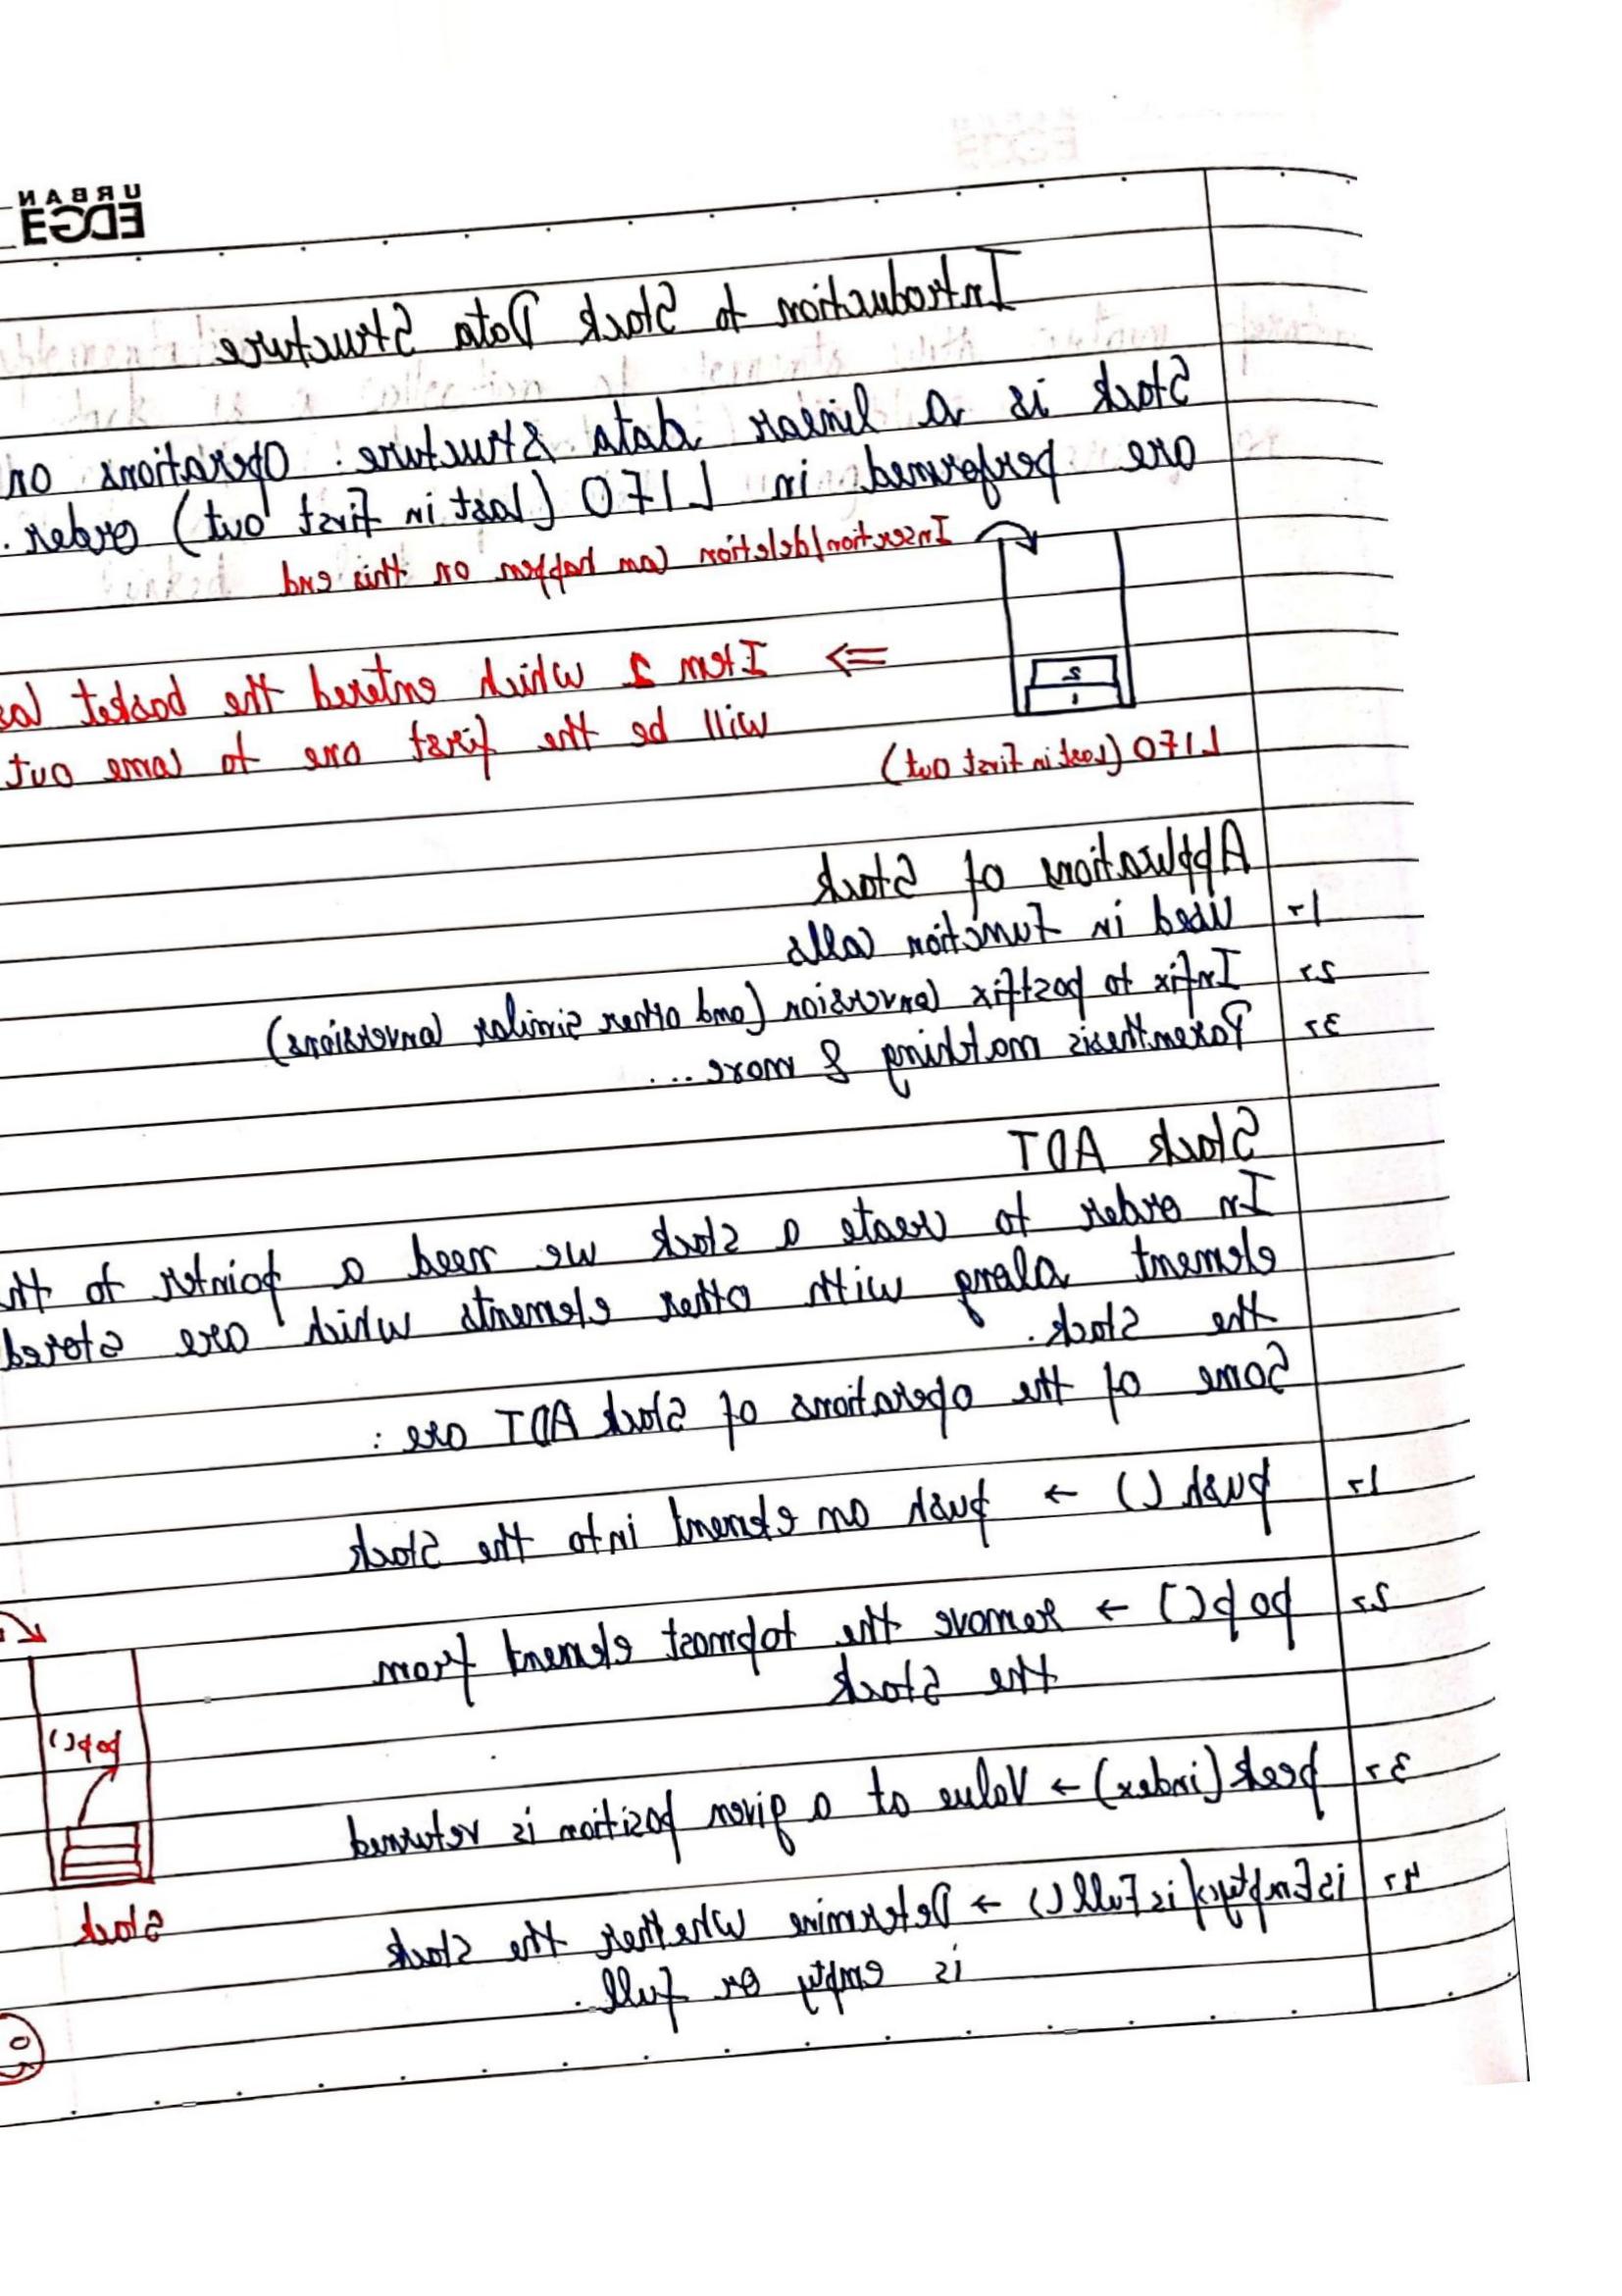 URBAN
EDGE
Introduction to Stack Data Structure
Stack is a linear data structure. Operations on
are performed in LIFO (last in first out) order.
Insertion/deletion can happen on this end
2
1
=> Item 2 which entered the basket las
will be the first one to come out
LIFO (Last in First out)
Applications of Stack
1→ Used in function calls
2→ Infix to postfix conversion (and other similar conversions)
3→ Parenthesis matching & more...
Stack ADT
In order to create a stack we need a pointer to th
element along with other elements which are stored
the stack.
Some of the operations of Stack ADT are :
1→ push () → push an element into the Stack
2→ pop() → remove the topmost element from
the Stack
pop()
3→ peek(index) → Value at a given position is returned
4→ isEmpty()/isFull() → Determine whether the stack
is empty or full.
Stack